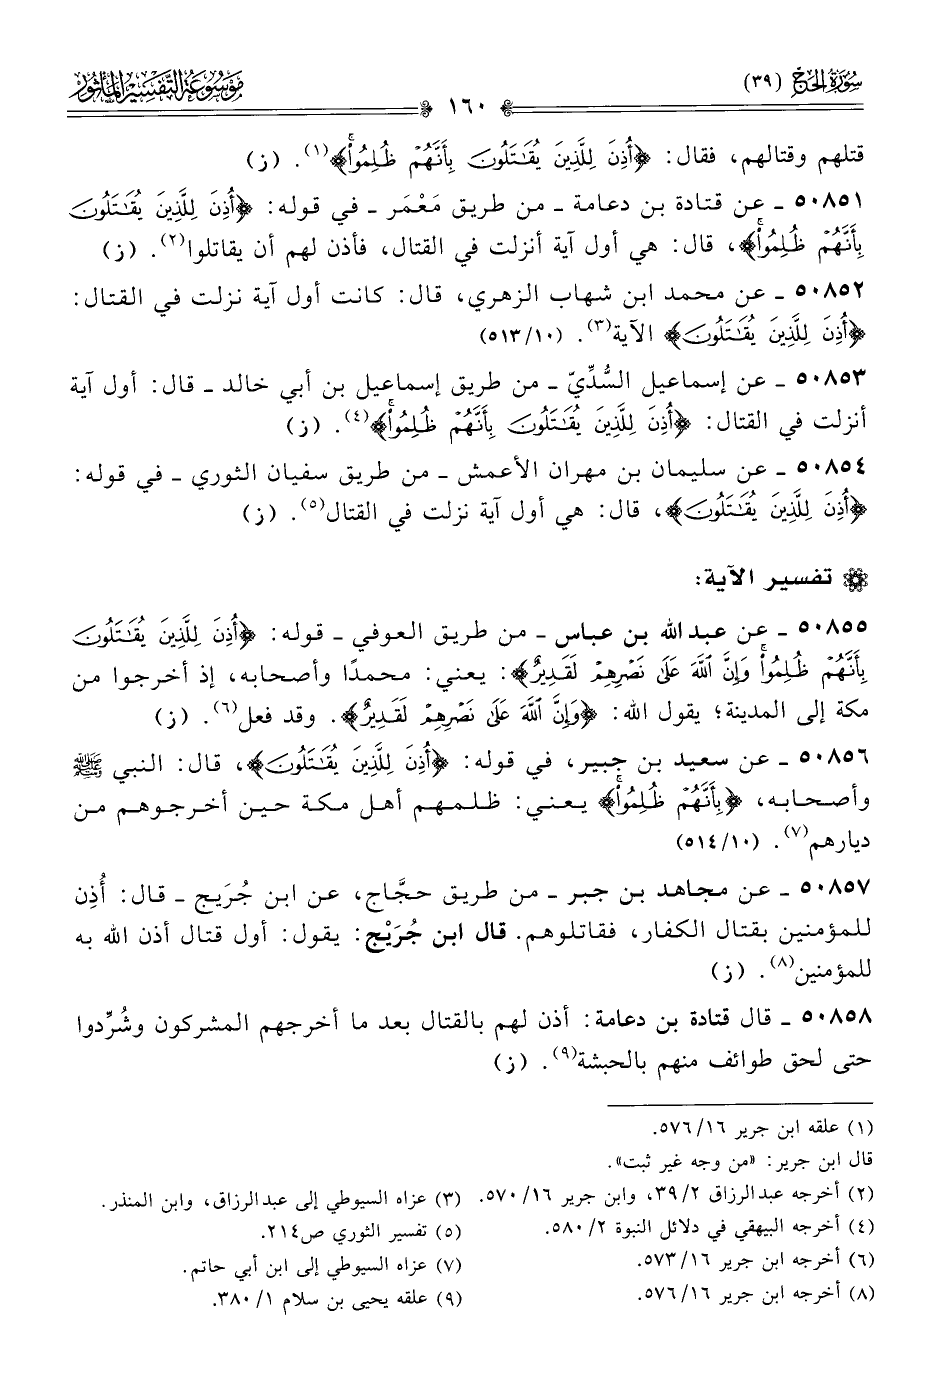 سُورَةُ الحَجّ (٣٩)
١٦٠
مَوْسُوعَةُ التَّفْسِيرِ المَأْثُورِ
قتلهم وقتالهم، فقال: ﴿أُذِنَ لِلَّذِينَ يُقَٰتَلُونَ بِأَنَّهُمْ ظُلِمُوا۟﴾(١). (ز)
٥٠٨٥١ ـ عن قتادة بن دعامة ـ من طريق مَعْمَر ـ في قوله: ﴿أُذِنَ لِلَّذِينَ يُقَٰتَلُونَ
بِأَنَّهُمْ ظُلِمُوا۟﴾، قال: هي أول آية أنزلت في القتال، فأذن لهم أن يقاتلوا(٢). (ز)
٥٠٨٥٢ ـ عن محمد ابن شهاب الزهري، قال: كانت أول آية نزلت في القتال:
﴿أُذِنَ لِلَّذِينَ يُقَٰتَلُونَ﴾ الآية(٣). (٥١٣/١٠)
٥٠٨٥٣ ـ عن إسماعيل السُّدِّيّ ـ من طريق إسماعيل بن أبي خالد ـ قال: أول آية
أنزلت في القتال: ﴿أُذِنَ لِلَّذِينَ يُقَٰتَلُونَ بِأَنَّهُمْ ظُلِمُوا۟﴾(٤). (ز)
٥٠٨٥٤ ـ عن سليمان بن مهران الأعمش ـ من طريق سفيان الثوري ـ في قوله:
﴿أُذِنَ لِلَّذِينَ يُقَٰتَلُونَ﴾، قال: هي أول آية نزلت في القتال(٥). (ز)
تفسير الآية:
٥٠٨٥٥ ـ عن عبد الله بن عباس ـ من طريق العوفي ـ قوله: ﴿أُذِنَ لِلَّذِينَ يُقَٰتَلُونَ
بِأَنَّهُمْ ظُلِمُوا۟ وَإِنَّ ٱللَّهَ عَلَىٰ نَصْرِهِمْ لَقَدِيرٌ﴾: يعني: محمدًا وأصحابه، إذ أخرجوا من
مكة إلى المدينة؛ يقول الله: ﴿وَإِنَّ ٱللَّهَ عَلَىٰ نَصْرِهِمْ لَقَدِيرٌ﴾. وقد فعل(٦). (ز)
٥٠٨٥٦ ـ عن سعيد بن جبير، في قوله: ﴿أُذِنَ لِلَّذِينَ يُقَٰتَلُونَ﴾، قال: النبي ﷺ
وأصحابه، ﴿بِأَنَّهُمْ ظُلِمُوا۟﴾ يعني: ظلمهم أهل مكة حين أخرجوهم من
ديارهم(٧). (٥١٤/١٠)
٥٠٨٥٧ ـ عن مجاهد بن جبر ـ من طريق حجَّاج، عن ابن جُرَيج ـ قال: أُذِن
للمؤمنين بقتال الكفار، فقاتلوهم. قال ابن جُرَيْج: يقول: أول قتال أذن الله به
للمؤمنين(٨). (ز)
٥٠٨٥٨ ـ قال قتادة بن دعامة: أذن لهم بالقتال بعد ما أخرجهم المشركون وشُرِّدوا
حتى لحق طوائف منهم بالحبشة(٩). (ز)
(١) علقه ابن جرير ١٦/ ٥٧٦.
قال ابن جرير: «من وجه غير ثبت».
(٢) أخرجه عبد الرزاق ٢/ ٣٩، وابن جرير ١٦/ ٥٧٠. (٣) عزاه السيوطي إلى عبد الرزاق، وابن المنذر.
(٤) أخرجه البيهقي في دلائل النبوة ٢/ ٥٨٠. (٥) تفسير الثوري ص٢١٤.
(٦) أخرجه ابن جرير ١٦/ ٥٧٣. (٧) عزاه السيوطي إلى ابن أبي حاتم.
(٨) أخرجه ابن جرير ١٦/ ٥٧٦. (٩) علقه يحيى بن سلام ١/ ٣٨٠.